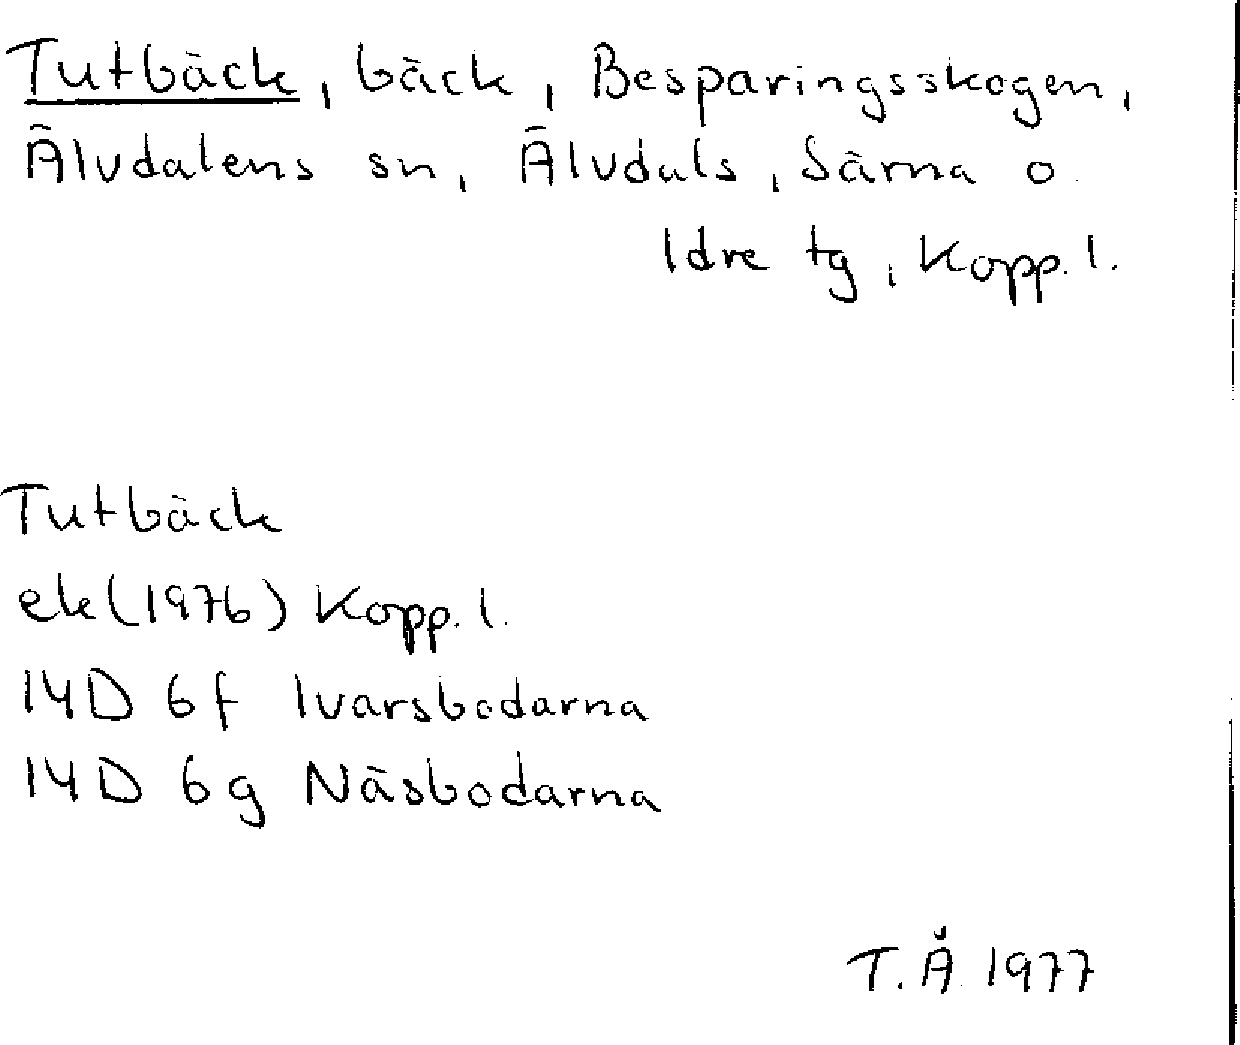 Tutbäck, bäck, Besparingsskogen,
Älvdalens sn, Älvdals, Särna o
Idre tg, Kopp. l.
Tutbäck
ek (1976) Kopp. l.
14D 6f Ivarsbodarna
14D 6g Näsbodarna
T.Å 1977